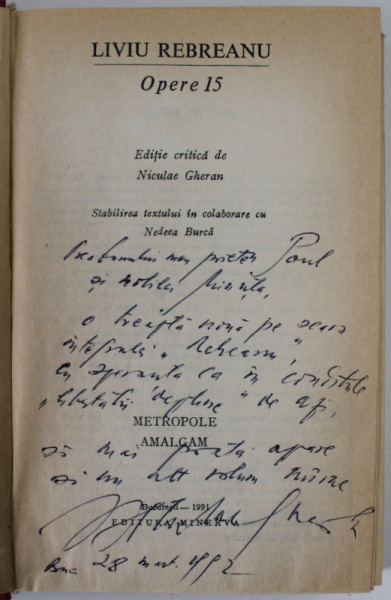 LIVIU REBREANU
Opere 15
Ediție critică de
Niculae Gheran
Stabilirea textului în colaborare cu
Nedeea Burcă
bunului meu prieten Paul
și nobilei
o treaptă nouă pe scara
integralei „Rebreanu",
cu speranța ca în condițiile
„libertății depline" de azi,
METROPOLE
AMALGAM
să mai poată apare
și un alt volum
București — 1991
EDITURA MINERVA
Buc 28 mart. 1992